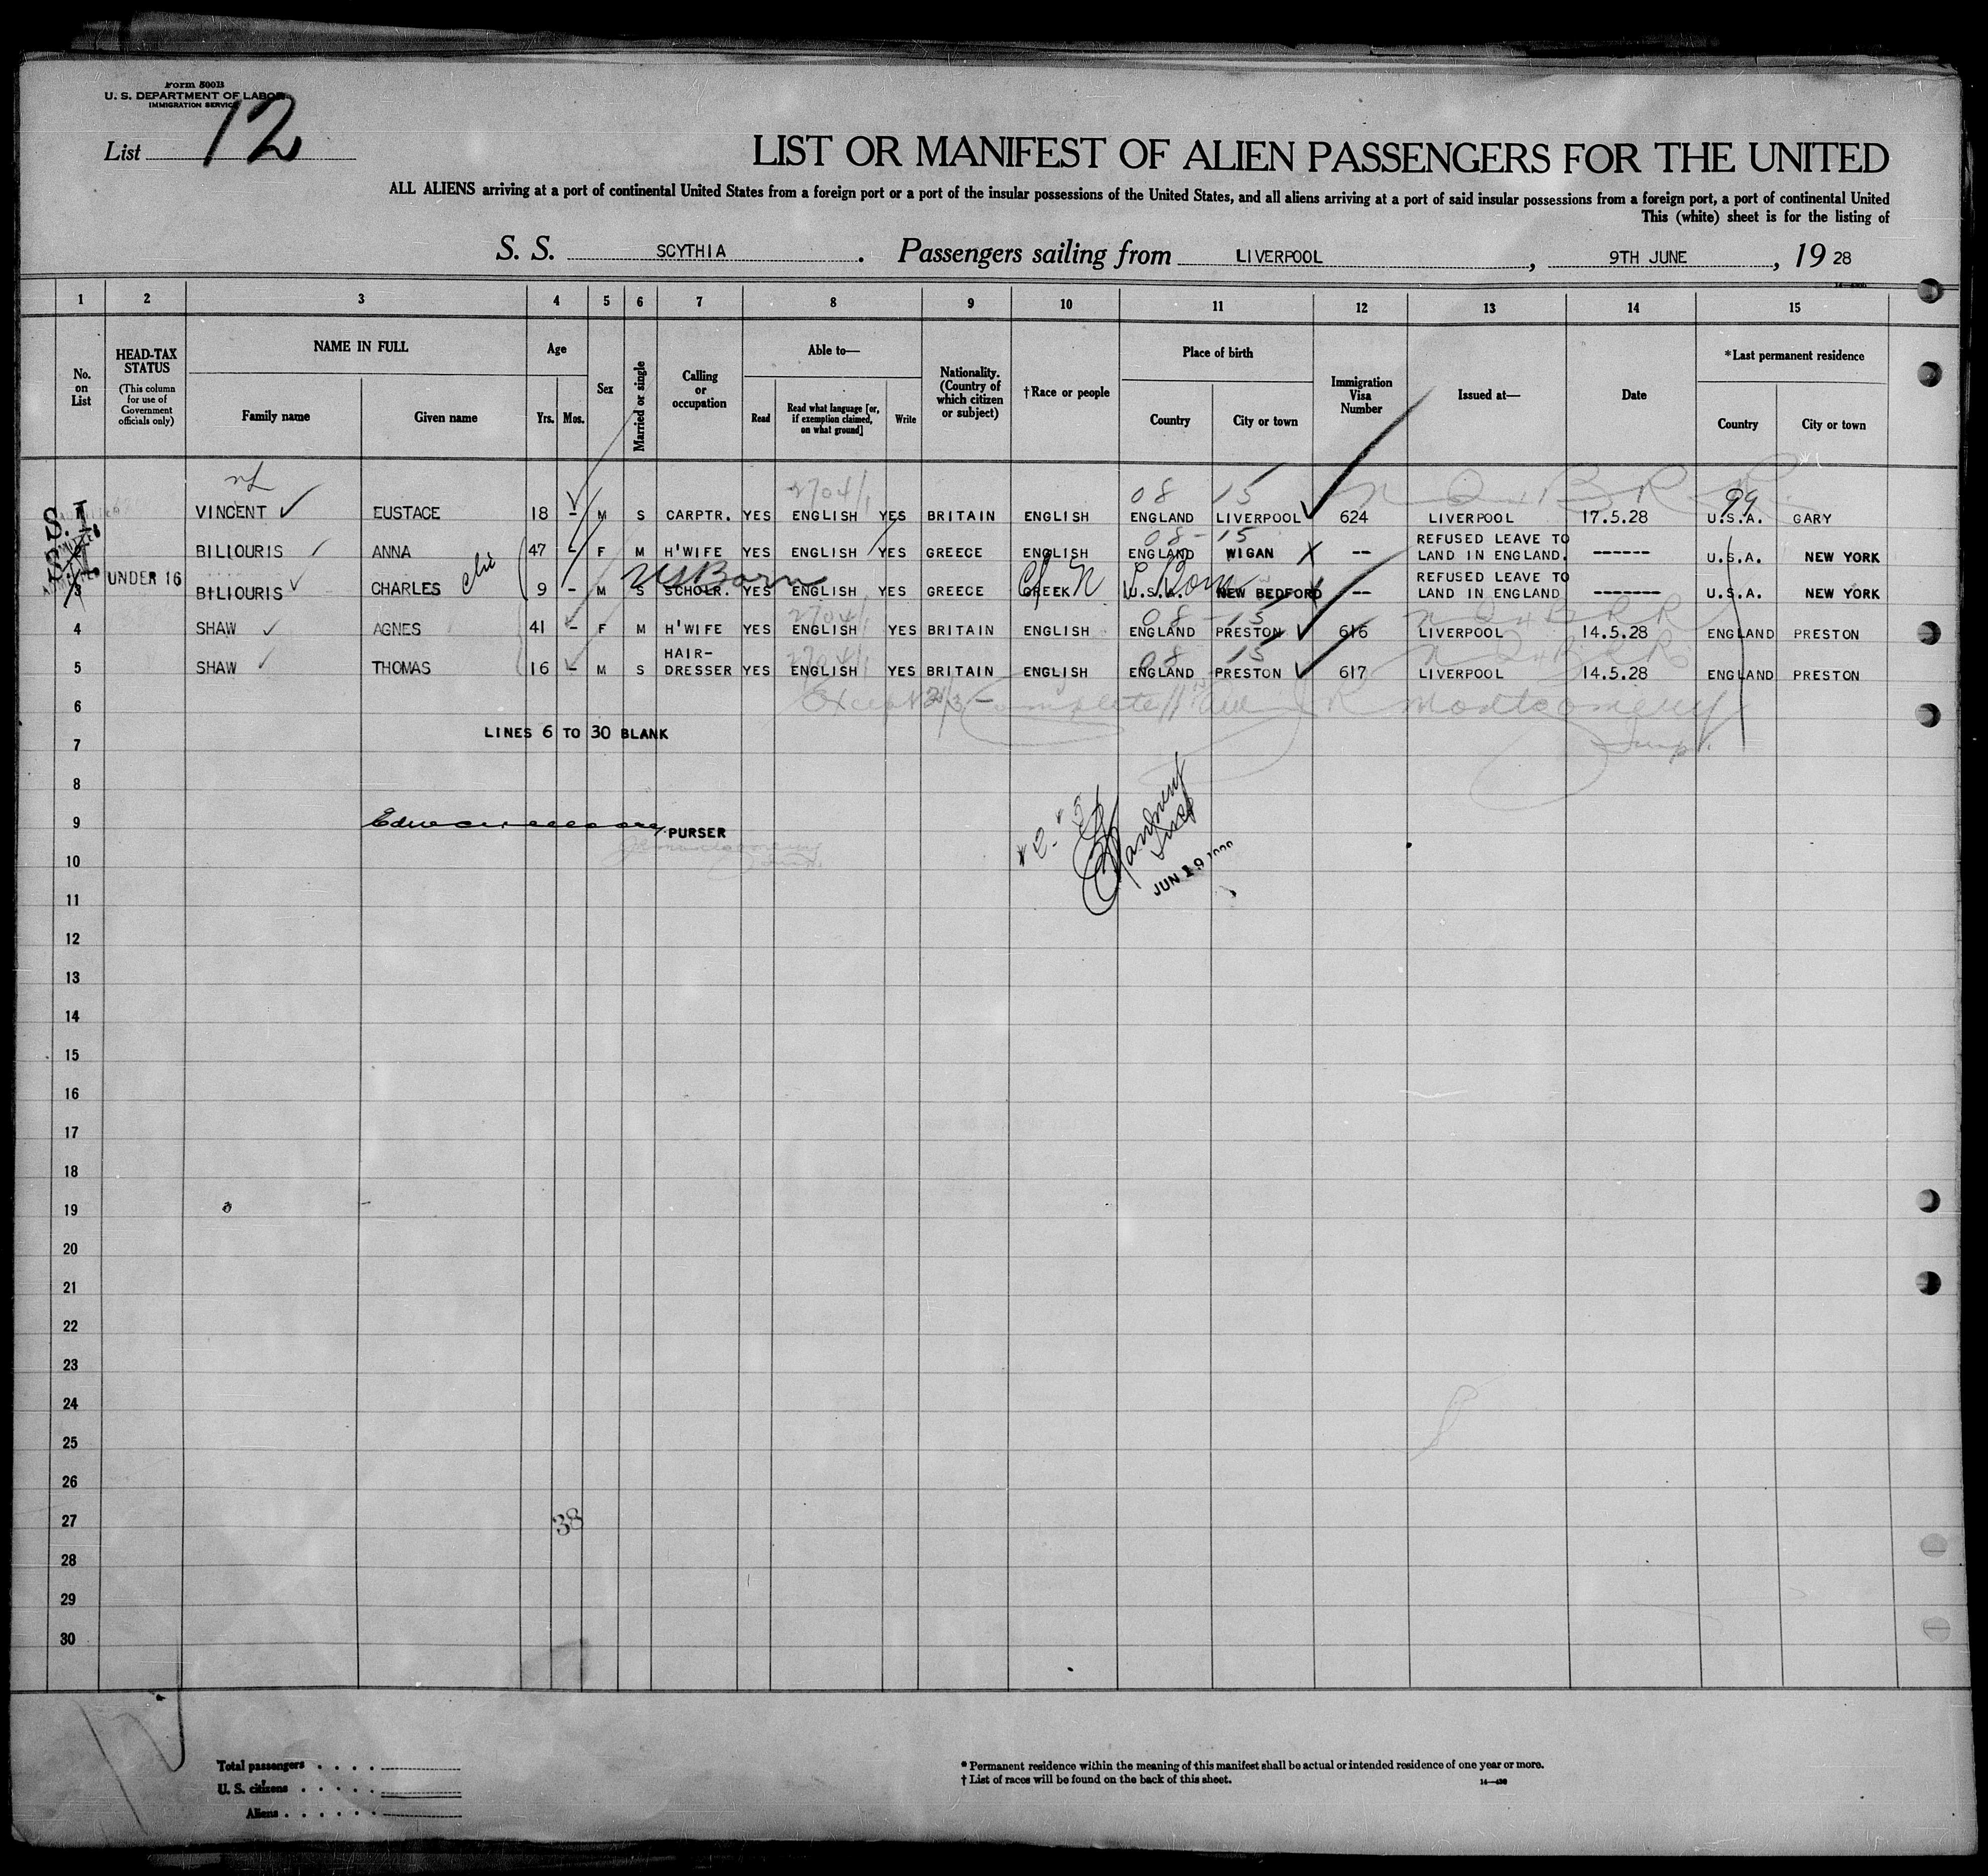 Form 500B
U. S. DEPARTMENT OF LABOR
IMMIGRATION SERVICE
List 12
LIST OR MANIFEST OF ALIEN PASSENGERS FOR THE UNITED
ALL ALIENS arriving at a port of continental United States from a foreign port or a port of the insular possessions of the United States, and all aliens arriving at a port of said insular possessions from a foreign port, a port of continental United
This (white) sheet is for the listing of
S. S. SCYTHIA. Passengers sailing from LIVERPOOL, 9TH JUNE, 19 28
1 2 3 4 5 6 7 8 9 10 11 12 13 14 15
No. on List
HEAD-TAX STATUS (This column for use of Government officials only)
NAME IN FULL
Family name
Given name
Age
Yrs. Mos.
Sex
Married or single
Calling or occupation
Able to—
Read
Read what language [or, if exemption claimed, on what ground]
Write
Nationality. (Country of which citizen or subject)
†Race or people
Place of birth
Country
City or town
Immigration Visa Number
Issued at—
Date
*Last permanent residence
Country
City or town
2704/1 08 15 99
S.I. VINCENT EUSTACE 18 - M S CARPTR. YES ENGLISH YES BRITAIN ENGLISH ENGLAND LIVERPOOL 624 LIVERPOOL 17.5.28 U.S.A. GARY
08-15
S.I. BILIOURIS ANNA 47 - F M H'WIFE YES ENGLISH YES GREECE ENGLISH ENGLAND WIGAN X -- REFUSED LEAVE TO LAND IN ENGLAND. ------ U.S.A. NEW YORK
US Born
3 UNDER 16 BILIOURIS CHARLES 9 - M S SCHOLR. YES ENGLISH YES GREECE GREEK U.S.A. NEW BEDFORD -- REFUSED LEAVE TO LAND IN ENGLAND ------- U.S.A. NEW YORK
2704/1 08-15
4 SHAW AGNES 41 - F M H'WIFE YES ENGLISH YES BRITAIN ENGLISH ENGLAND PRESTON 616 LIVERPOOL 14.5.28 ENGLAND PRESTON
2704/1 08 15
5 SHAW THOMAS 16 - M S HAIR-DRESSER YES ENGLISH YES BRITAIN ENGLISH ENGLAND PRESTON 617 LIVERPOOL 14.5.28 ENGLAND PRESTON
6 Except 2/3 - Complete J R Montgomery
7 LINES 6 TO 30 BLANK Insp.
8
9 PURSER
10
JUN 19
11
12
13
14
15
16
17
18
19
20
21
22
23
24
25
26
27 38
28
29
30
Total passengers . . . .
U. S. citizens . . . . .
Aliens . . . . . .
* Permanent residence within the meaning of this manifest shall be actual or intended residence of one year or more.
† List of races will be found on the back of this sheet.